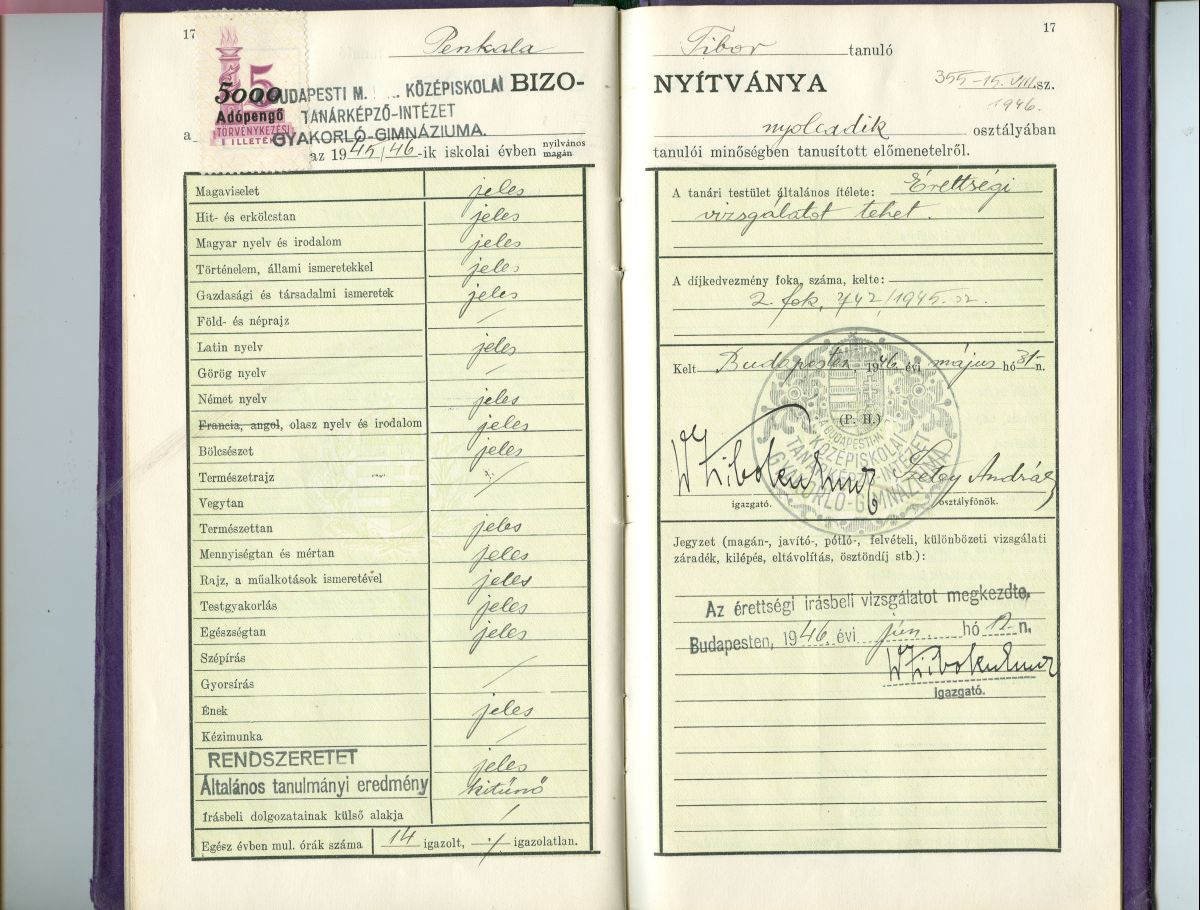 17
Penkala
5
5000
Adópengő
TÖRVÉNYKEZÉSI
ILLETÉK
BUDAPESTI M. KÖZÉPISKOLAI
TANÁRKÉPZŐ-INTÉZET
GYAKORLÓ-GIMNÁZIUMA.
BIZO-
a
az 1945/46-ik iskolai évben nyilvános
magán
Magaviselet jeles
Hit- és erkölcstan jeles
Magyar nyelv és irodalom jeles
Történelem, állami ismeretekkel jeles
Gazdasági és társadalmi ismeretek jeles
Föld- és néprajz /
Latin nyelv jeles
Görög nyelv /
Német nyelv jeles
Francia, angol, olasz nyelv és irodalom jeles
Bölcsészet jeles
Természetrajz /
Vegytan
Természettan jeles
Mennyiségtan és mértan jeles
Rajz, a műalkotások ismeretével jeles
Testgyakorlás jeles
Egészségtan jeles
Szépírás /
Gyorsírás /
Ének jeles
Kézimunka /
RENDSZERETET jeles
Általános tanulmányi eredmény kitünő
Írásbeli dolgozatainak külső alakja /
Egész évben mul. órák száma 14 igazolt, ·/· igazolatlan.
17
Tibor tanuló
NYÍTVÁNYA 355-15.VIII.sz.
1946.
nyolcadik osztályában
tanulói minőségben tanusított előmenetelről.
A tanári testület általános ítélete: Érettségi
vizsgálatot tehet.
A díjkedvezmény foka, száma, kelte:
2. fok, 742/1945.
Kelt Budapesten, 1946 évi május hó 31-n.
(P. H.)
A BUDAPESTI M.
KÖZÉPISKOLAI
TANÁRKÉPZŐ-INTÉZET
GYAKORLÓ-GIMNÁZIUMA
András
igazgató. osztályfőnök.
Jegyzet (magán-, javító-, pótló-, felvételi, különbözeti vizsgálati
záradék, kilépés, eltávolítás, ösztöndíj stb.):
Az érettségi írásbeli vizsgálatot megkezdte.
Budapesten, 1946. évi jún. hó 12 n.
igazgató.